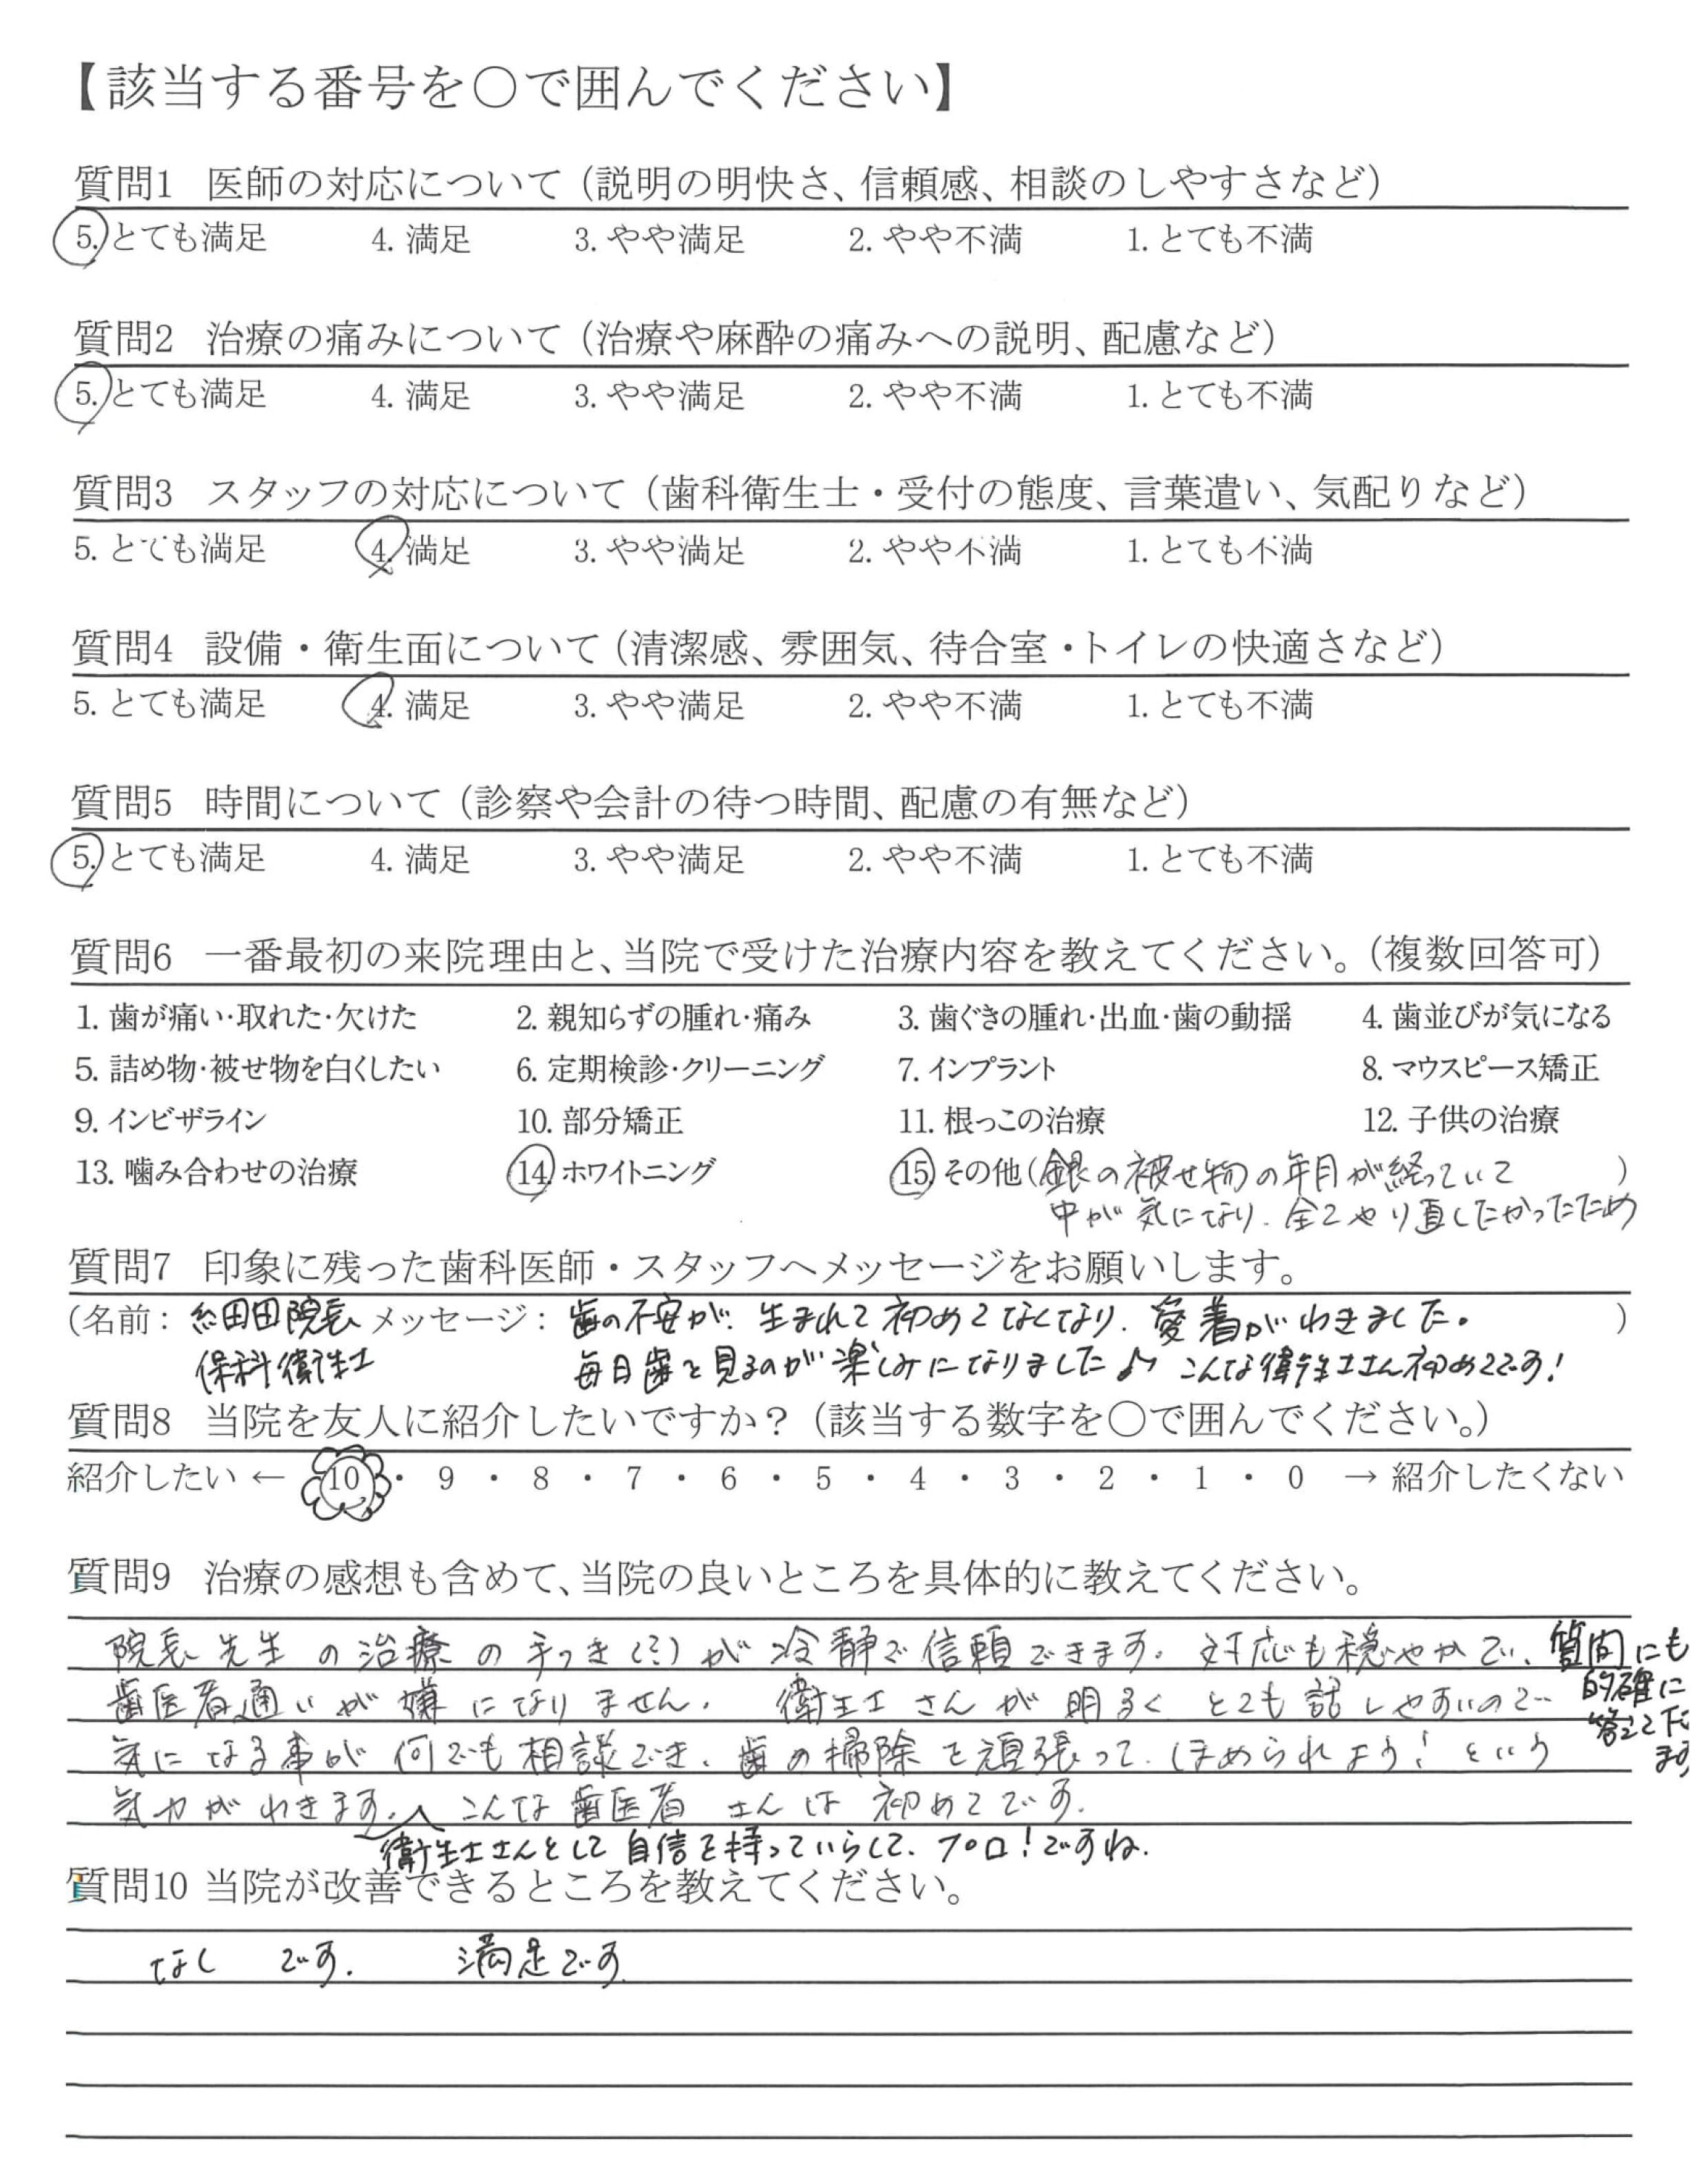 【該当する番号を〇で囲んでください】
質問1 医師の対応について（説明の明快さ、信頼感、相談のしやすさなど）
5. とても満足 4. 満足 3. やや満足 2. やや不満 1. とても不満
質問2 治療の痛みについて（治療や麻酔の痛みへの説明、配慮など）
5. とても満足 4. 満足 3. やや満足 2. やや不満 1. とても不満
質問3 スタッフの対応について（歯科衛生士・受付の態度、言葉遣い、気配りなど）
5. とても満足 4. 満足 3. やや満足 2. やや不満 1. とても不満
質問4 設備・衛生面について（清潔感、雰囲気、待合室・トイレの快適さなど）
5. とても満足 4. 満足 3. やや満足 2. やや不満 1. とても不満
質問5 時間について（診察や会計の待つ時間、配慮の有無など）
5. とても満足 4. 満足 3. やや満足 2. やや不満 1. とても不満
質問6 一番最初の来院理由と、当院で受けた治療内容を教えてください。（複数回答可）
1. 歯が痛い･取れた･欠けた 2. 親知らずの腫れ･痛み 3. 歯ぐきの腫れ･出血･歯の動揺 4. 歯並びが気になる
5. 詰め物･被せ物を白くしたい 6. 定期検診･クリーニング 7. インプラント 8. マウスピース矯正
9. インビザライン 10. 部分矯正 11. 根っこの治療 12. 子供の治療
13. 噛み合わせの治療 14. ホワイトニング 15. その他（銀の被せ物の年月が経っていて ）
中が気になり、全てやり直したかったため
質問7 印象に残った歯科医師・スタッフへメッセージをお願いします。
（名前： 田院長 メッセージ： 歯の不安が、生まれて初めてなくなり、愛着がわきました。 ）
保科衛生士 毎日歯を見るのが楽しみになりました♪ こんな衛生士さん初めてです！
質問8 当院を友人に紹介したいですか？（該当する数字を〇で囲んでください。）
紹介したい ← 10 ・ 9 ・ 8 ・ 7 ・ 6 ・ 5 ・ 4 ・ 3 ・ 2 ・ 1 ・ 0 → 紹介したくない
質問9 治療の感想も含めて、当院の良いところを具体的に教えてください。
院長先生の治療の手つき(?)が冷静で信頼できます。対応も穏やかで、質問にも
的確に
答えて下
ます
歯医者通いが嫌になりません。 衛生士さんが明るくとても話しやすいので
気になる事が何でも相談でき、歯の掃除を頑張って、ほめられよう！という
気力がわきます。こんな歯医者さんは初めてです。
衛生士さんとして自信を持っていらして、プロ！ですね。
質問10 当院が改善できるところを教えてください。
なしです。 満足です